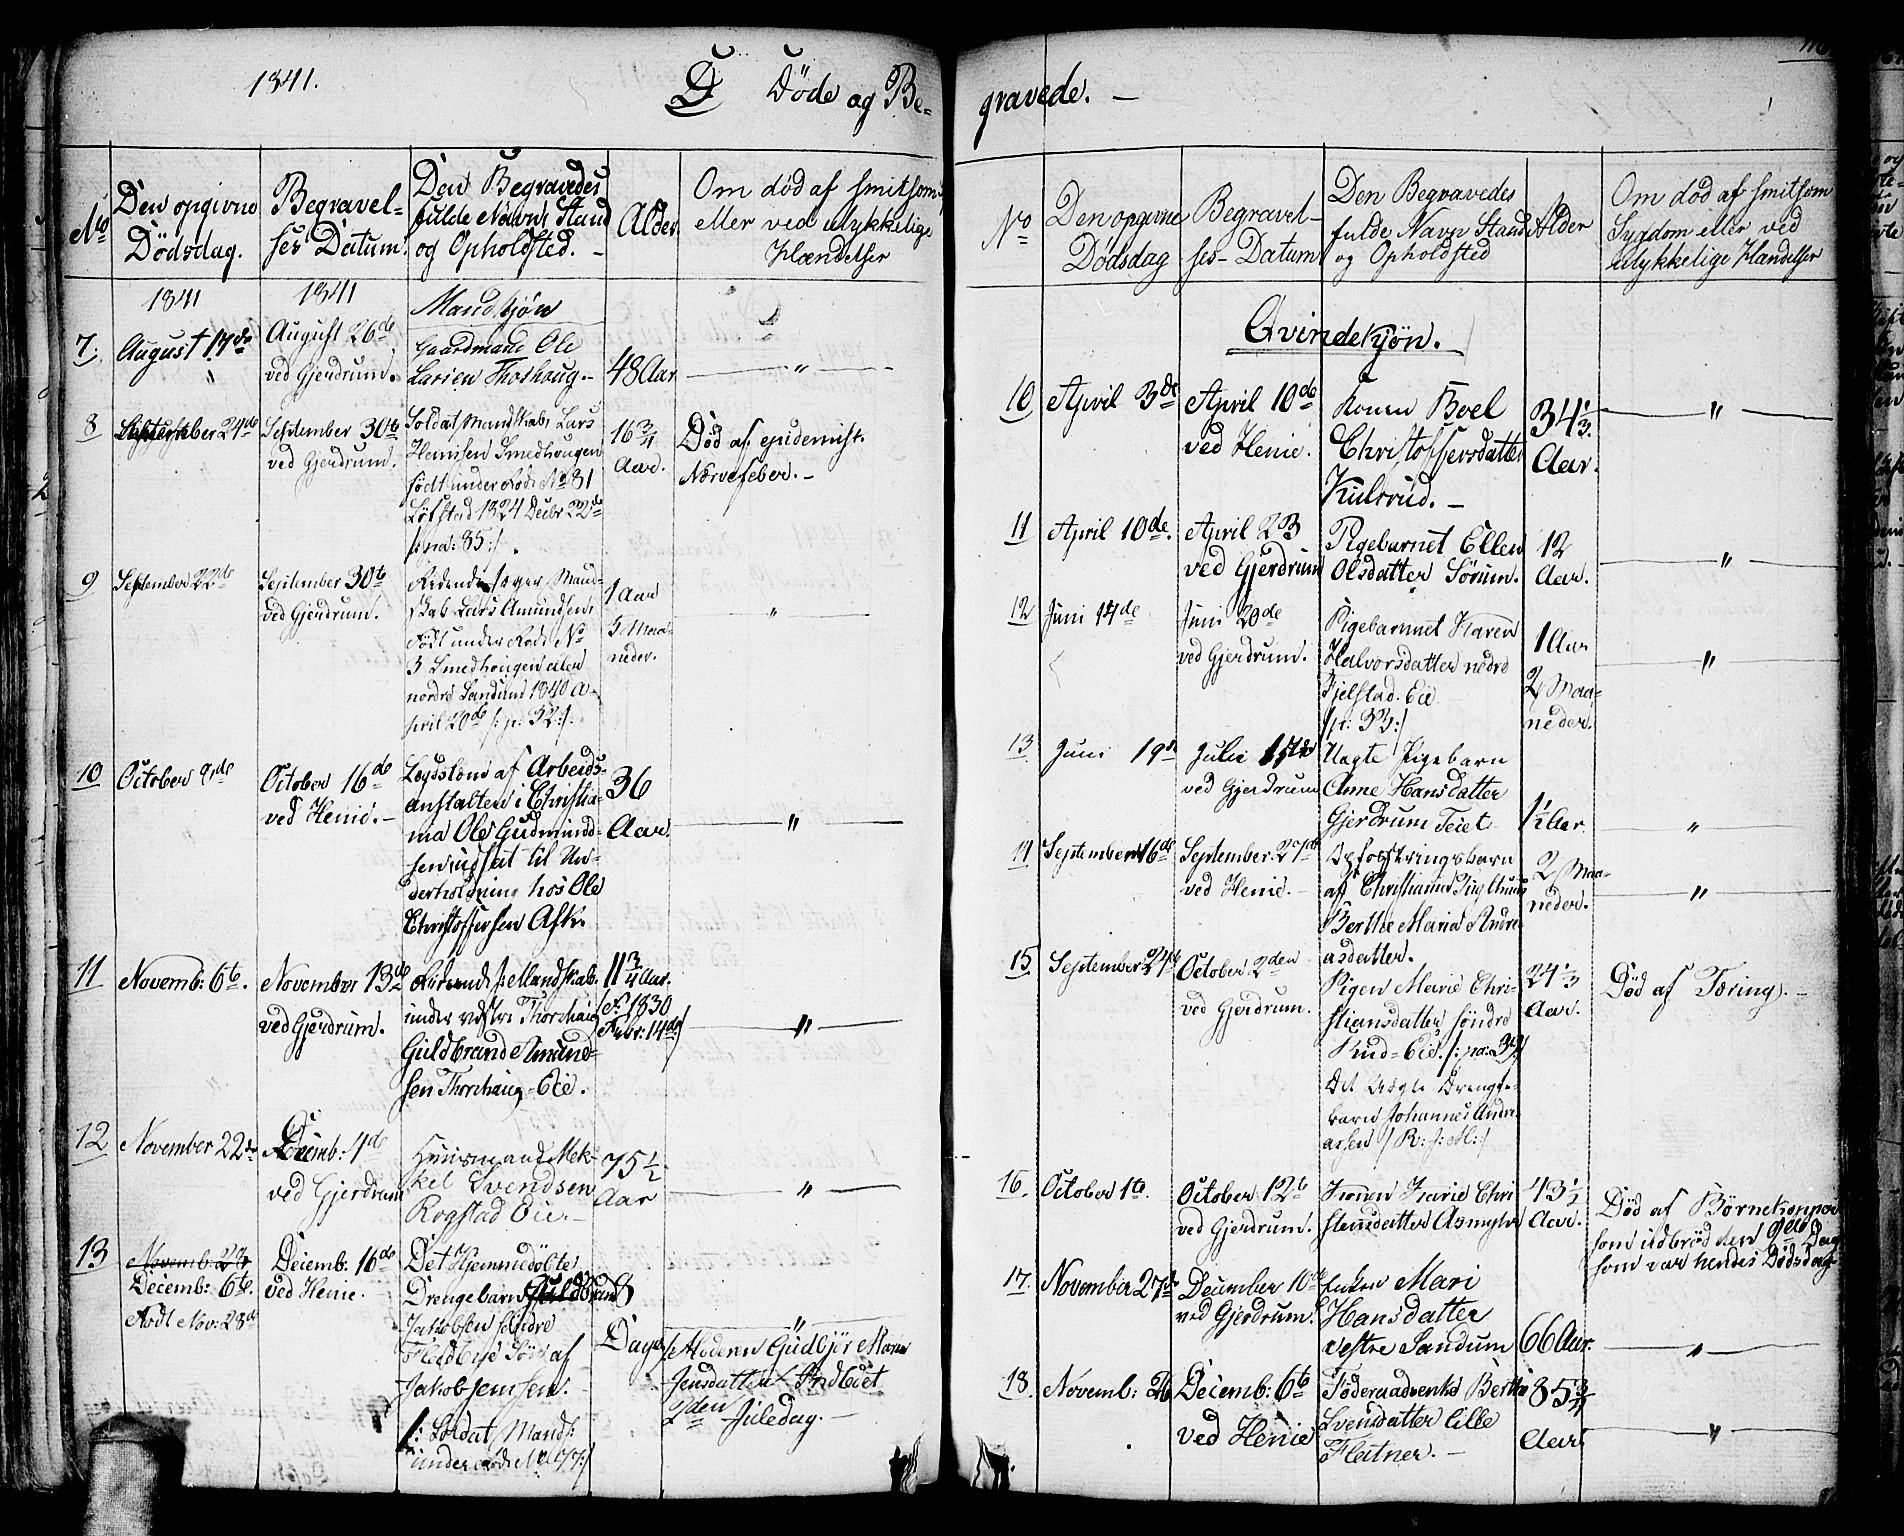 1841.
D Døde og Be-
No
Den opgivne
Dødsdag.
Begravel-
ses Datum.
Den Begravedes
fulde Navn, Stand
og Opholdsted. -
Alder
Om død af smitsom
eller ved ulykkelige
Hændelser
1841
1841
Mandkjøn
7.
August 17de
August 26de
ved Gjerdrum.
Gaardmand Ole
Larsen Thoshoug.-
48 Aar
"
8
September 24de
September 30te
ved Gjerdrum.
Soldat Mandskab, Lars
Hemisen Smedhougen
født under Rode No 81
Løfstad 1824 Decbr 22de
/: pa: 85:/.
16 3/4
Aar.
Død af epidemisk
Nervefeber. -
9
September 22de
September 30te
ved Gjerdrum.
Mand-
skab Lars Amundsen,
Født under Rode No
3 Smedhougen eller
nordre Sandum 1840 A-
pril 20de /: p: 32:/.
1 Aar
5 Maa-
neder.
"
10
October 9de
October 16de
ved Henie. -
Lægdslem af Arbeids-
anstalten i Christia-
nia Ole Gudmund-
sen, udsat til Un-
derholdning hos Ole
Christoffersen Ask.
36
Aar.
"
11
Novemb: 6te.
November 13de
ved Gjerdrum.
Mandskab.
under vestre Thorshaug
Guldbrand Amund-
sen Thorshaug-Eie.
11 3/4 Aar.
/F. 1830
Febr: 14de/
"
12
November 22de
Decemb: 4de
ved Gjerdrum
Huusmand Mek-
kel Svendsen
Rogstad Eie. -
75 1/2
Aar
"
13
Novemb: 28
Decemb: 6te.
Født Nov: 28de
Decemb: 16de
ved Henie.
Det Hjemmedøbte
Drengebarn Guldbrand
Jakobsen søndre
Fladbye Søn af
Jakob Jensen. -
/: Soldat Mandsk:
under Rode No 97:/
8
Dage
"
/Moderen Gudbjør Maria
Jensdatter
2den Juledag. -
gravede. -
No
Den opgivne
Dødsdag
Begravel-
ses-Datum
Den Begravedes
fulde Navn Stand
og Opholdsted
Alder
Om død af smitsom
Sygdom eller ved
ulykkelige Hændelser
Qvindekjøn.
10
April 3de
April 10de
ved Henie.
Konen Boel
Christoffersdatter
Kulsrud. -
34 1/3.
Aar.
"
11
April 10de.
April 23
ved Gjerdrum
Pigebarnet Ellen
Olsdatter Sørum.
12
Aar.
"
12
Juni 14de
Juni 20de
ved Gjerdrum.
Pigebarnet Karen
Halvorsdatter nedre
Fjelstad Eie
/p: 33:/
1 Aar
2 Maa-
neder.
"
13.
Juni 19de
Julie 17de
ved Gjerdrum
Uægte Pigebarn
Anne Hansdatter
Gjerdrum Teiet
1 1/2 Aar.
"
14
September 16de
September 27de
ved Henie. -
Opfostringsbarn
af Christiania
Berthe Maria Andre-
asdatter.
2 Maa-
neder.
"
15.
September 24de
October 2den
ved Gjerdrum.
Pigen Marie Chri-
stiansdatter søndre
Rud-Eie.
Det Uægte Drenge-
barn Johannes Andre-
asen
24 1/3
Aar.
Død af Tæring. -
16.
October 1te.
October 12te
ved Gjerdrum.
Konen Karie Chri-
stensdatter Asmyhr
43 1/2
Aar.
Død af Børnekopper
som udbrød den 9de Dag
som var hendes Dødsdag.
17.
November 27de
December 10de
ved Gjerdrum.
Enken Mari
Hansdatter
vestre Sandum
66 Aar.
"
18.
Novemb: 26
Decemb: 6te
ved Henie
Føderaadsenke Berthe
Svensdatter lille
Flatner. -
85 3/4
Aar
"